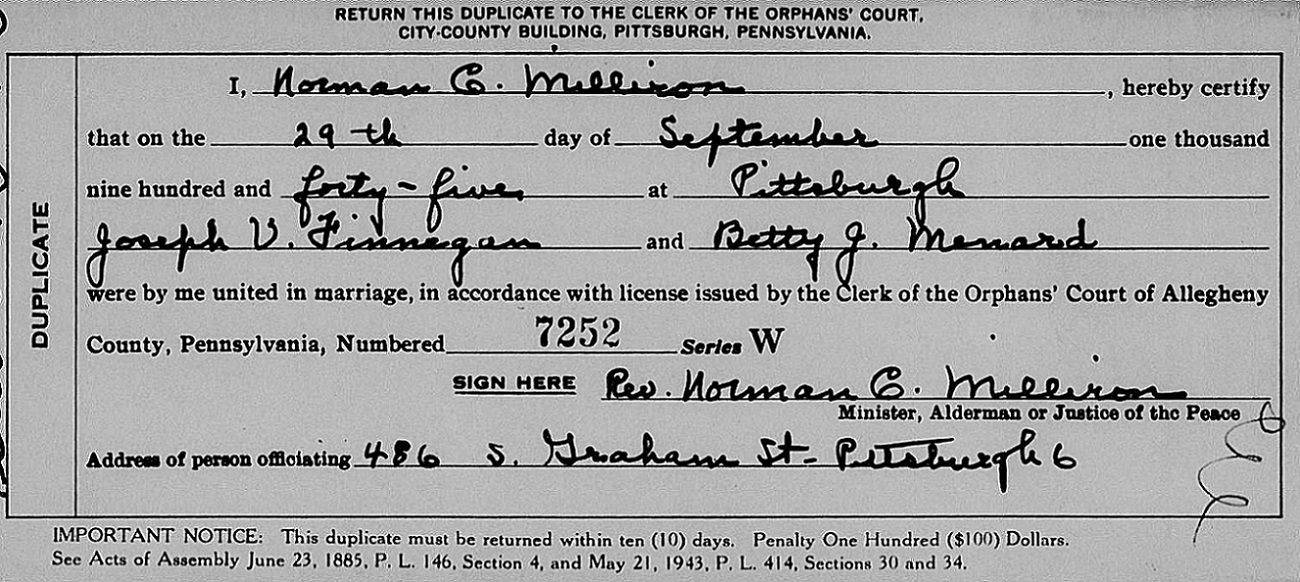 RETURN THIS DUPLICATE TO THE CLERK OF THE ORPHANS' COURT,
CITY-COUNTY BUILDING, PITTSBURGH, PENNSYLVANIA.
DUPLICATE
I, Norman C. Milliron, hereby certify
that on the 29th day of September one thousand
nine hundred and forty-five at Pittsburgh
Joseph V. Finnegan and Betty J. Menard
were by me united in marriage, in accordance with license issued by the Clerk of the Orphans' Court of Allegheny
County, Pennsylvania, Numbered 7252 Series W
SIGN HERE Rev. Norman C. Milliron
Minister, Alderman or Justice of the Peace
Address of person officiating 486 S. Graham St- Pittsburgh 6
IMPORTANT NOTICE: This duplicate must be returned within ten (10) days. Penalty One Hundred ($100) Dollars.
See Acts of Assembly June 23, 1885, P. L. 146, Section 4, and May 21, 1943, P. L. 414, Sections 30 and 34.